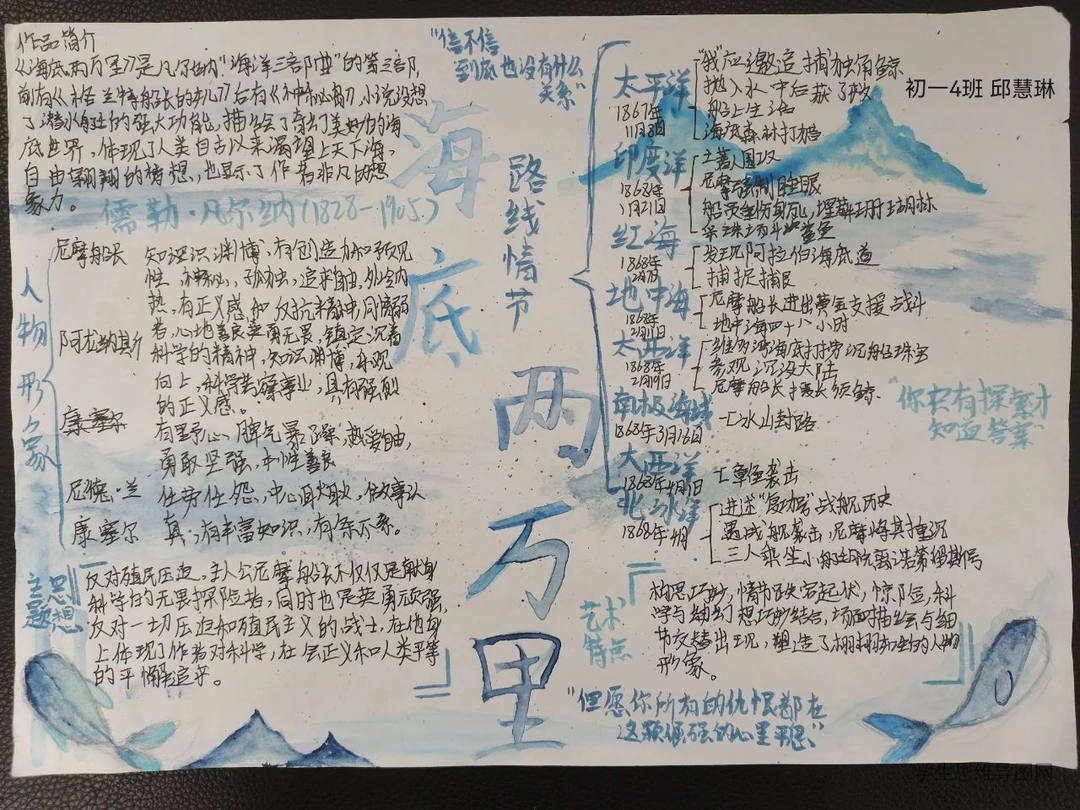 作品简介
《海底两万里》是凡尔纳"海洋三部曲"的第三部,
前有《格兰特船长的儿女》后有《神秘岛》,小说设想
了潜水艇的强大功能,描绘了奇幻美妙的海
底世界,体现了人类自古以来渴望上天下海,
自由翱翔的梦想,也显示了作者非凡的想
象力。
儒勒·凡尔纳(1828-1905)
人物形象
尼摩船长
知识渊博,有创造力和预见
性,神秘,孤独,追求自由,外冷内
热,有正义感,
阿龙纳斯
科学的精神,知识渊博,乐观
向上,科学考察事业,具有强烈
的正义感。
康塞尔
有野心,脾气暴躁,热爱自由,
勇敢坚强,本性善良
尼德·兰
任劳任怨,忠心耿耿,做事认
康塞尔
真,有丰富知识,有条不紊。
主题思想
反对殖民压迫,主人公尼摩船长不仅仅是献身
科学的无畏探险者,同时也是英勇顽强,
反对一切压迫和殖民主义的战士,在他身
上体现了作者对科学,社会正义和人类平等
的不懈追求。
"信不信
到底也没有什么
关系"
海底两万里
路线情节
太平洋
1867年
11月8日
"我"应邀追捕独角鲸
抛入水中后获了救
船上生活
海底森林打猎
印度洋
1868年
1月21日
土著人围攻
尼摩强制睡眠
红海
1868年
发现阿拉伯海底道
捕捉捕
地中海
1868年
尼摩船长进出黄金支援战斗
地中海四十八小时
太西洋
1868年
2月19日
维哥湾海底打捞沉船珠宝
参观沉没大陆
尼摩船长
南极海域
1868年3月16日
冰山封路
大西洋
1868年4月1日
章鱼袭击
北冰洋
1868年
进述"复仇号"战舰历史
遇战船袭击,尼摩将其撞沉
三人乘坐小船
初一4班 邱慧琳
"你只有探索才
知道答案"
艺术特点
构思巧妙,情节跌宕起伏,惊险,科
学与幻想巧妙结合,场面描绘与细
节交替出现,塑造了栩栩如生的人物
形象。
"但愿你所有的仇恨都在
这颗倔强的心里平息"
学生思维导图网